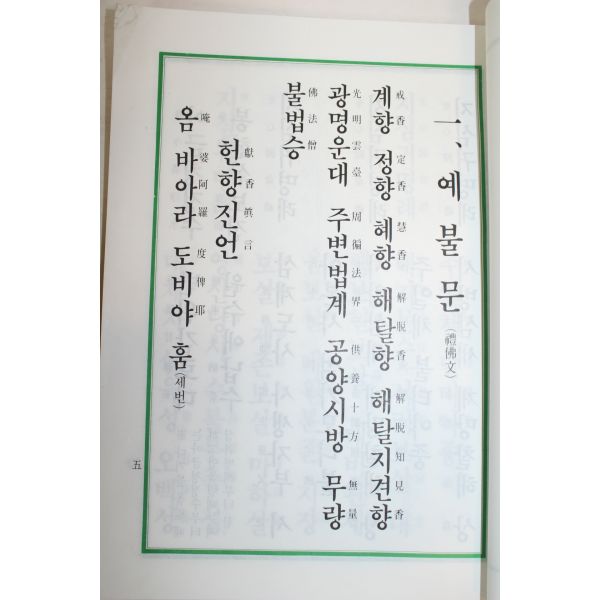 一、예 불 문 (禮佛文)
계향 정향 혜향 해탈향 해탈지견향
戒香 定香 慧香 解脫香 解脫知見香
광명운대 주변법계 공양시방 무량
光明雲臺 周徧法界 供養十方 無量
불법승
佛法僧
헌향진언
獻香眞言
옴 바아라 도비야 훔 (세번)
唵 婆阿羅 度俾耶
五